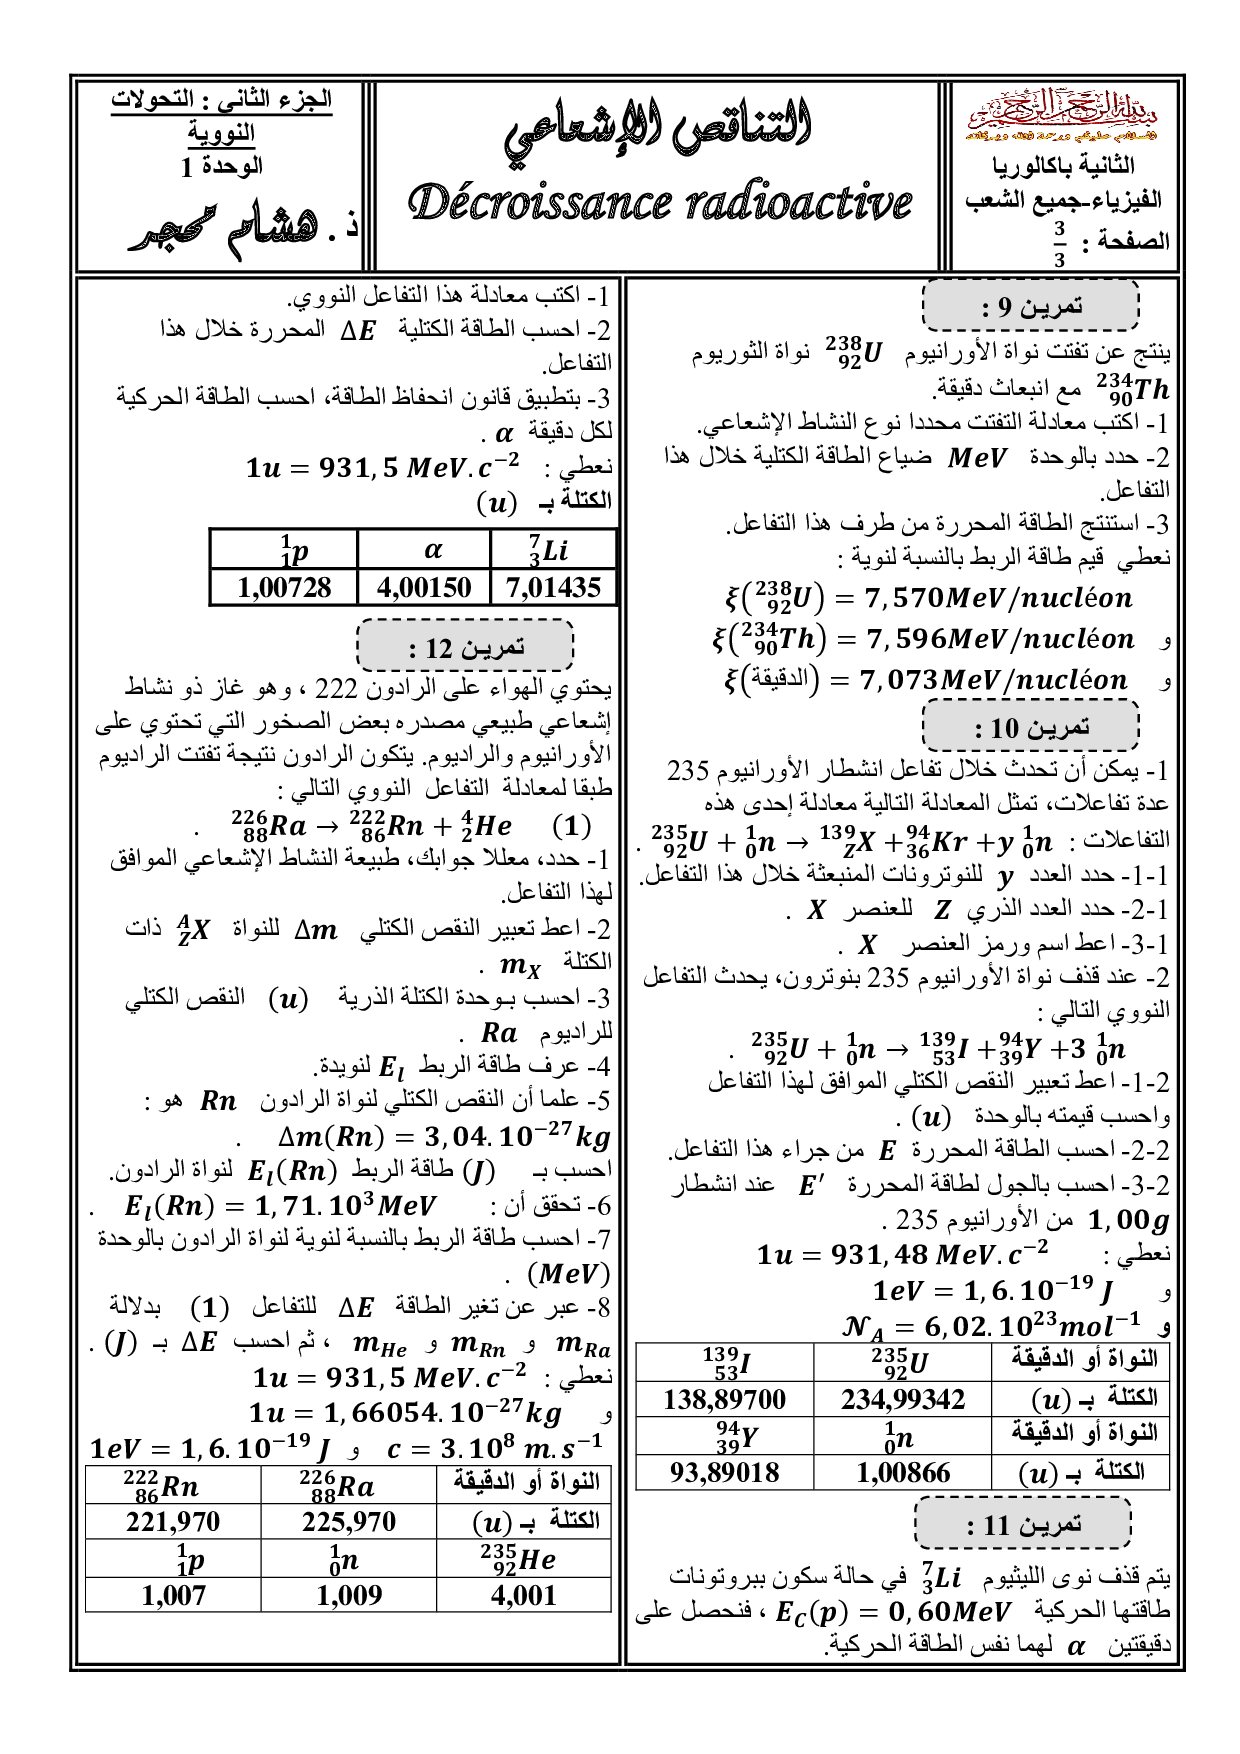 الثانية باكالوريا
الفيزياء-جميع الشعب
الصفحة : 3/3
التناقص الإشعاعي
Décroissance radioactive
الجزء الثاني : التحولات
النووية
الوحدة 1
ذ . هشام محجر
تمريـن 9 :
ينتج عن تفتت نواة الأورانيوم ²³⁸₉₂U نواة الثوريوم
²³⁴₉₀Th مع انبعاث دقيقة.
1- اكتب معادلة التفتت محددا نوع النشاط الإشعاعي.
2- حدد بالوحدة MeV ضياع الطاقة الكتلية خلال هذا
التفاعل.
3- استنتج الطاقة المحررة من طرف هذا التفاعل.
نعطي قيم طاقة الربط بالنسبة لنوية :
ξ(²³⁸₉₂U) = 7,570MeV/nucléon
و ξ(²³⁴₉₀Th) = 7,596MeV/nucléon
و ξ(الدقيقة) = 7,073MeV/nucléon
تمريـن 10 :
1- يمكن أن تحدث خلال تفاعل انشطار الأورانيوم 235
عدة تفاعلات، تمثل المعادلة التالية معادلة إحدى هذه
التفاعلات : ²³⁵₉₂U + ¹₀n → ¹³⁹_Z X + ⁹⁴₃₆Kr + y ¹₀n .
1-1- حدد العدد y للنوترونات المنبعثة خلال هذا التفاعل.
1-2- حدد العدد الذري Z للعنصر X .
1-3- اعط اسم ورمز العنصر X .
2- عند قذف نواة الأورانيوم 235 بنوترون، يحدث التفاعل
النووي التالي :
²³⁵₉₂U + ¹₀n → ¹³⁹₅₃I + ⁹⁴₃₉Y + 3 ¹₀n .
2-1- اعط تعبير النقص الكتلي الموافق لهذا التفاعل
واحسب قيمته بالوحدة (u) .
2-2- احسب الطاقة المحررة E من جراء هذا التفاعل.
2-3- احسب بالجول لطاقة المحررة E′ عند انشطار
1,00g من الأورانيوم 235 .
نعطي : 1u = 931,48 MeV.c⁻²
و 1eV = 1,6.10⁻¹⁹ J
و 𝒩_A = 6,02.10²³mol⁻¹
النواة أو الدقيقة ²³⁵₉₂U ¹³⁹₅₃I
الكتلة بـ (u) 234,99342 138,89700
النواة أو الدقيقة ¹₀n ⁹⁴₃₉Y
الكتلة بـ (u) 1,00866 93,89018
تمريـن 11 :
يتم قذف نوى الليثيوم ⁷₃Li في حالة سكون ببروتونات
طاقتها الحركية E_C(p) = 0,60MeV ، فنحصل على
دقيقتين α لهما نفس الطاقة الحركية.
1- اكتب معادلة هذا التفاعل النووي.
2- احسب الطاقة الكتلية ΔE المحررة خلال هذا
التفاعل.
3- بتطبيق قانون انحفاظ الطاقة، احسب الطاقة الحركية
لكل دقيقة α .
نعطي : 1u = 931,5 MeV.c⁻²
الكتلة بـ (u)
⁷₃Li α ¹₁p
7,01435 4,00150 1,00728
تمريـن 12 :
يحتوي الهواء على الرادون 222 ، وهو غاز ذو نشاط
إشعاعي طبيعي مصدره بعض الصخور التي تحتوي على
الأورانيوم والراديوم. يتكون الرادون نتيجة تفتت الراديوم
طبقا لمعادلة التفاعل النووي التالي :
²²⁶₈₈Ra → ²²²₈₆Rn + ⁴₂He (1) .
1- حدد، معللا جوابك، طبيعة النشاط الإشعاعي الموافق
لهذا التفاعل.
2- اعط تعبير النقص الكتلي Δm للنواة ᴬ_Z X ذات
الكتلة m_X .
3- احسب بـوحدة الكتلة الذرية (u) النقص الكتلي
للراديوم Ra .
4- عرف طاقة الربط E_l لنويدة.
5- علما أن النقص الكتلي لنواة الرادون Rn هو :
Δm(Rn) = 3,04.10⁻²⁷kg .
احسب بـ (J) طاقة الربط E_l(Rn) لنواة الرادون.
6- تحقق أن : E_l(Rn) = 1,71.10³MeV .
7- احسب طاقة الربط بالنسبة لنوية لنواة الرادون بالوحدة
(MeV) .
8- عبر عن تغير الطاقة ΔE للتفاعل (1) بدلالة
m_Ra و m_Rn و m_He ، ثم احسب ΔE بـ (J) .
نعطي : 1u = 931,5 MeV.c⁻²
و 1u = 1,66054.10⁻²⁷kg
c = 3.10⁸ m.s⁻¹ و 1eV = 1,6.10⁻¹⁹ J
النواة أو الدقيقة ²²⁶₈₈Ra ²²²₈₆Rn
الكتلة بـ (u) 225,970 221,970
²³⁵₉₂He ¹₀n ¹₁p
4,001 1,009 1,007